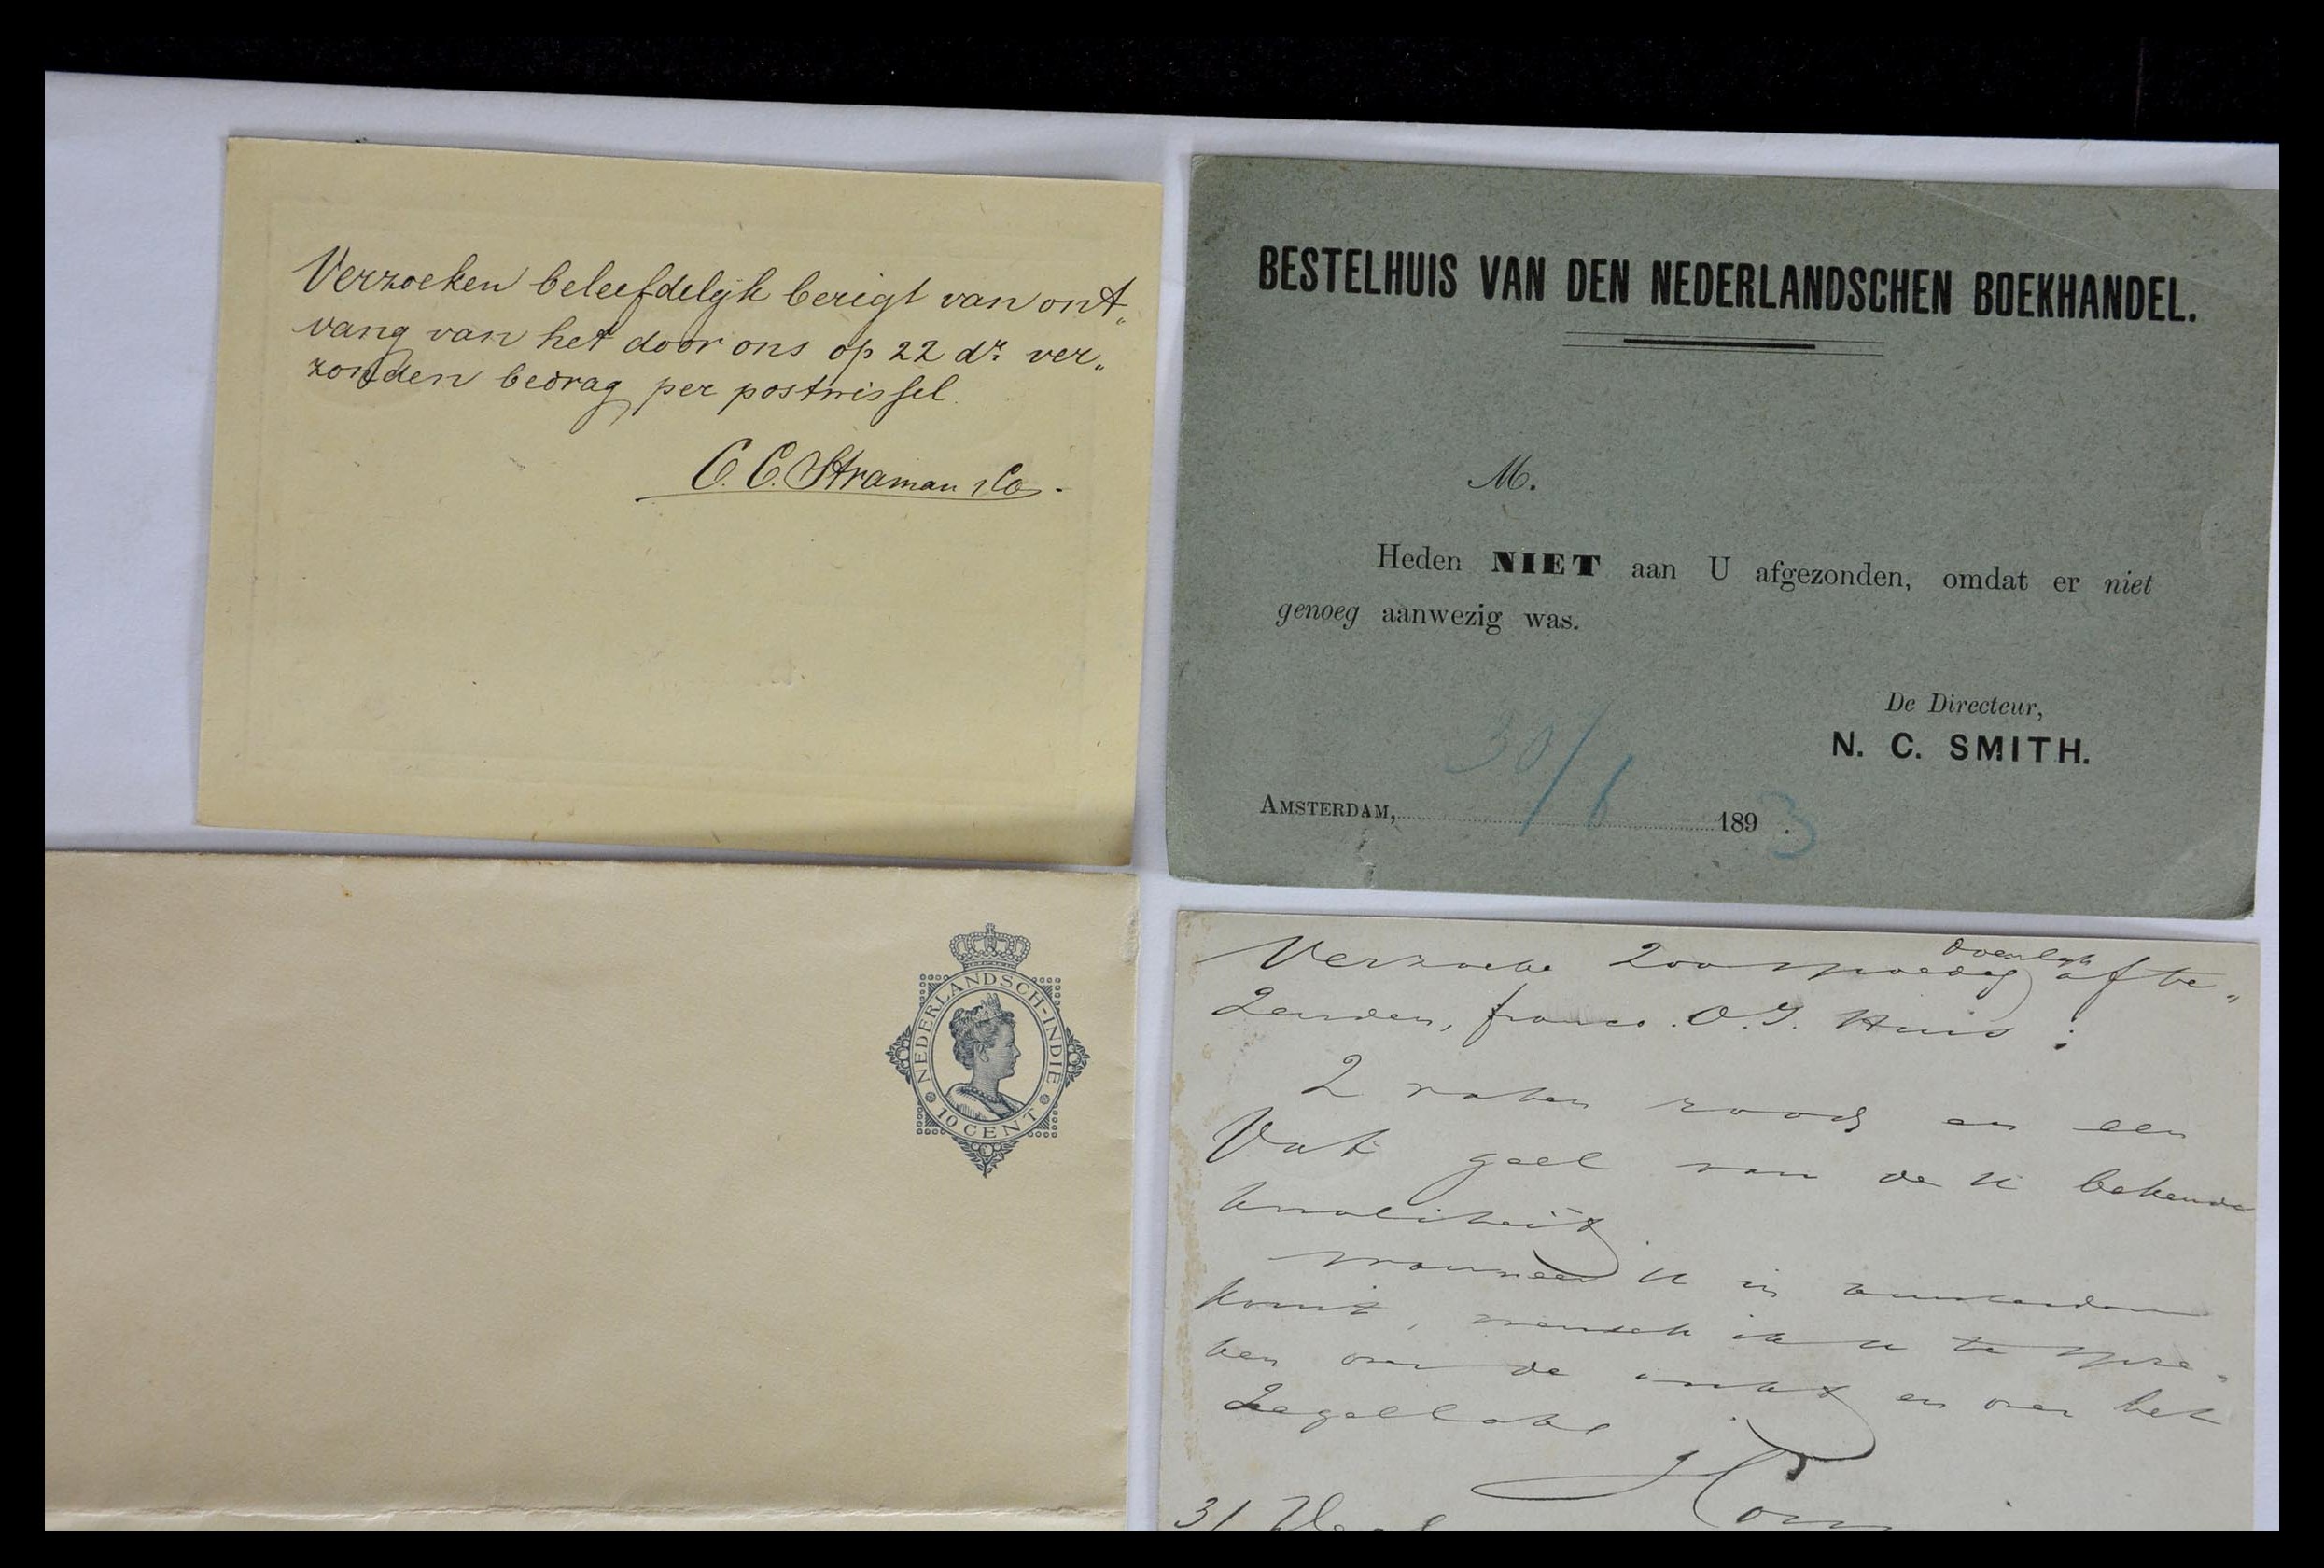 Verzoeken beleefdelijk berigt van ont„
vang van het door ons op 22 dr. ver„
zonden bedrag per postwissel.
C. C. Straman & Co.
BESTELHUIS VAN DEN NEDERLANDSCHEN BOEKHANDEL.
M.
Heden NIET aan U afgezonden, omdat er niet
genoeg aanwezig was.
De Directeur,
N. C. SMITH.
30/6
AMSTERDAM, 189 3.
NEDERLANDSCH-INDIE
10 CENT
Verzoeke Zoo spoedig af te„
Zenden, franco. O.I. Huis:
2 vaten rood en een
Vat geel van de U bekende
kwaliteit.
Wanneer U in Amsterdam
komt, wensch ik U te spre„
ken over de inkt en over het
Zegellak
31